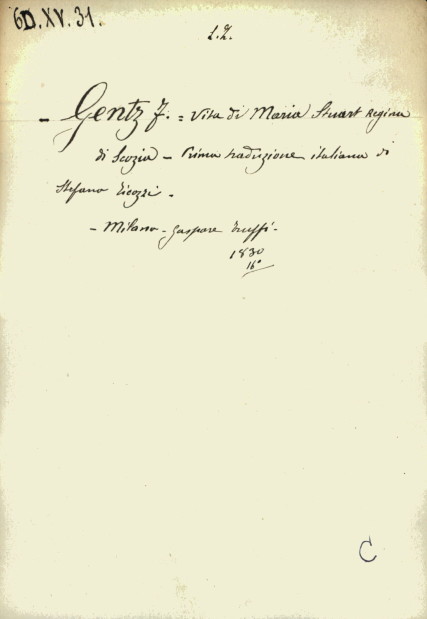 6D.XV.31.
L.Z.
- Gentz F. = Vita di Maria Stuart Regina
di Scozia - Prima traduzione italiana di
Stefano Ticozzi -
- Milano - Gaspare Truffi -
1830
16°
C